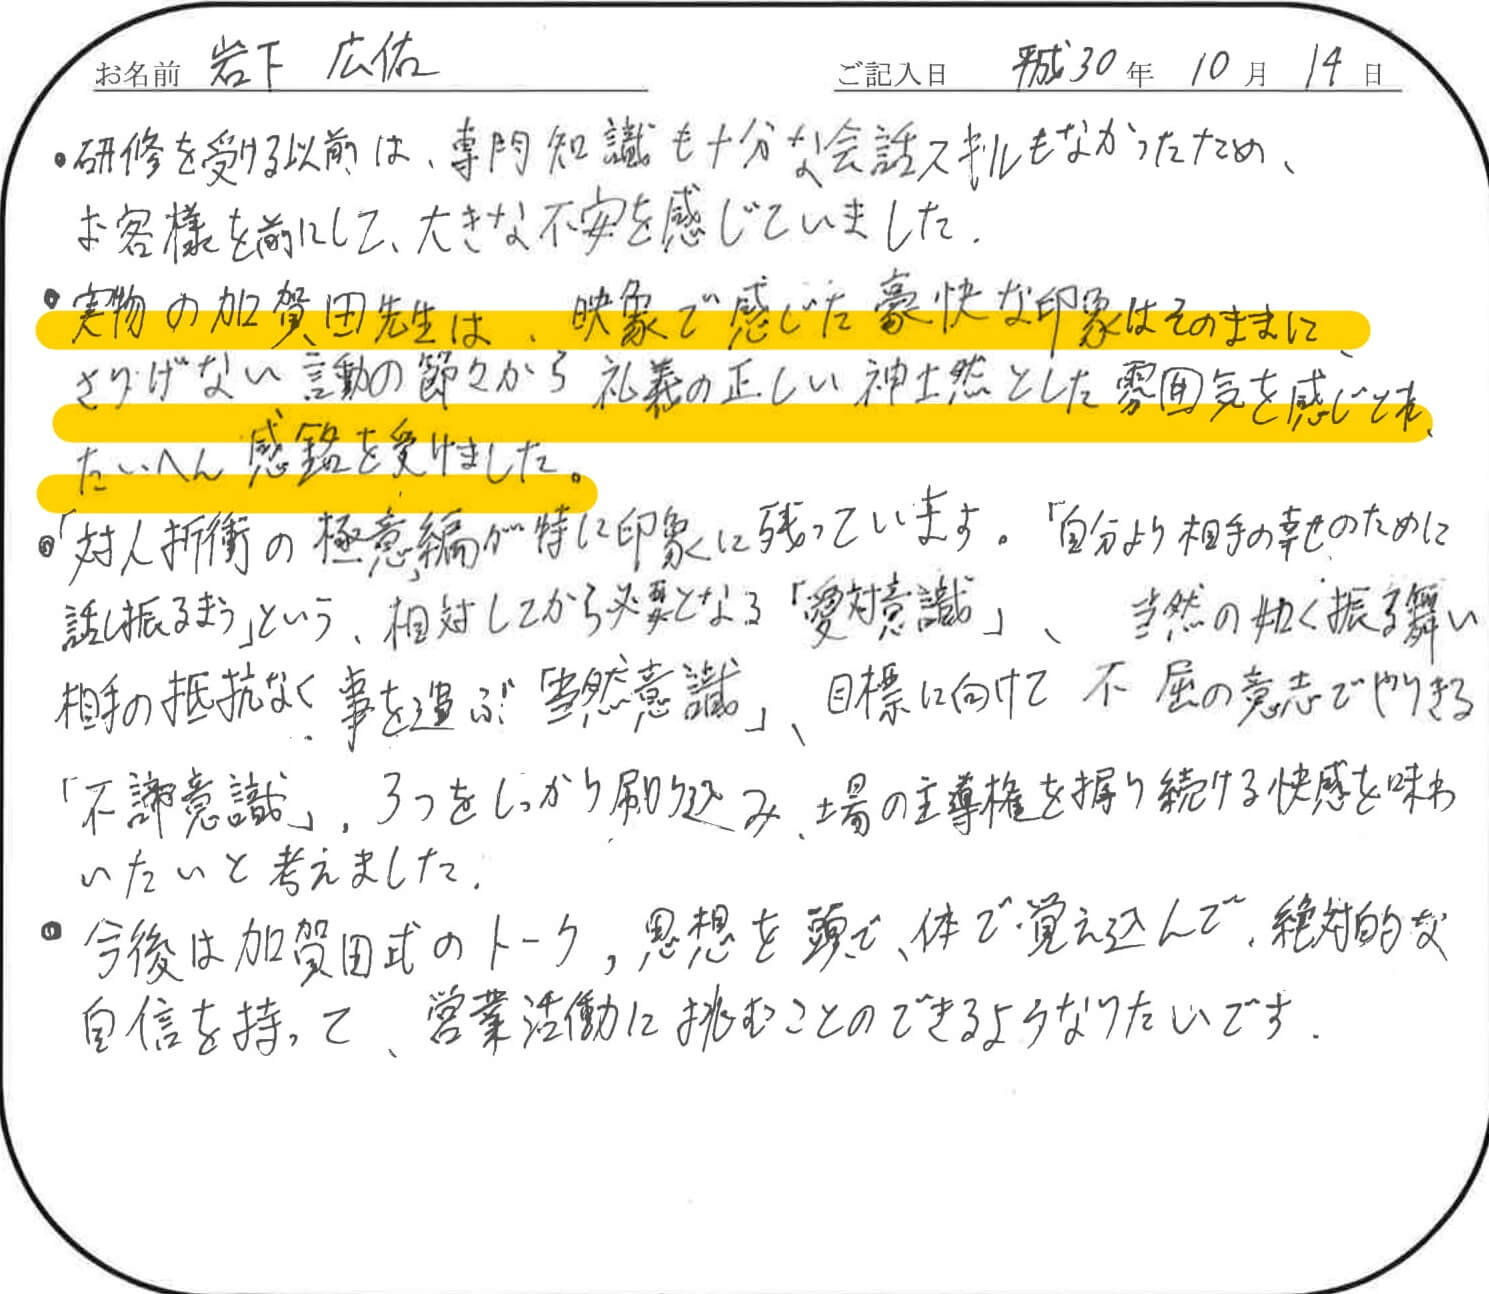 お名前 岩下 広佑 ご記入日 平成30年 10月 14日
・研修を受ける以前は、専門知識も十分な会話スキルもなかったため、
お客様を前にして、大きな不安を感じていました.
・実物の加賀田先生は、映象で感じた豪快な印象はそのままに、
さりげない言動の節々から礼義の正しい神士然とした雰囲気を感じとれ、
たいへん感銘を受けました。
・「対人折衝の極意」編が特に印象に残っています。「自分より相手の幸せのために
話し振るまう」という、相対してから必要となる「愛対意識」、当然の如く振る舞い
相手の抵抗なく事を運ぶ「当然意識」、目標に向けて不屈の意志でやりきる
「不諦意識」, 3つをしっかり刷り込み、場の主導権を握り続ける快感を味わ
いたいと考えました.
・今後は加賀田式のトーク,思想を頭で、体で覚え込んで、絶対的な
自信を持って、営業活動に挑むことのできるようなりたいです.